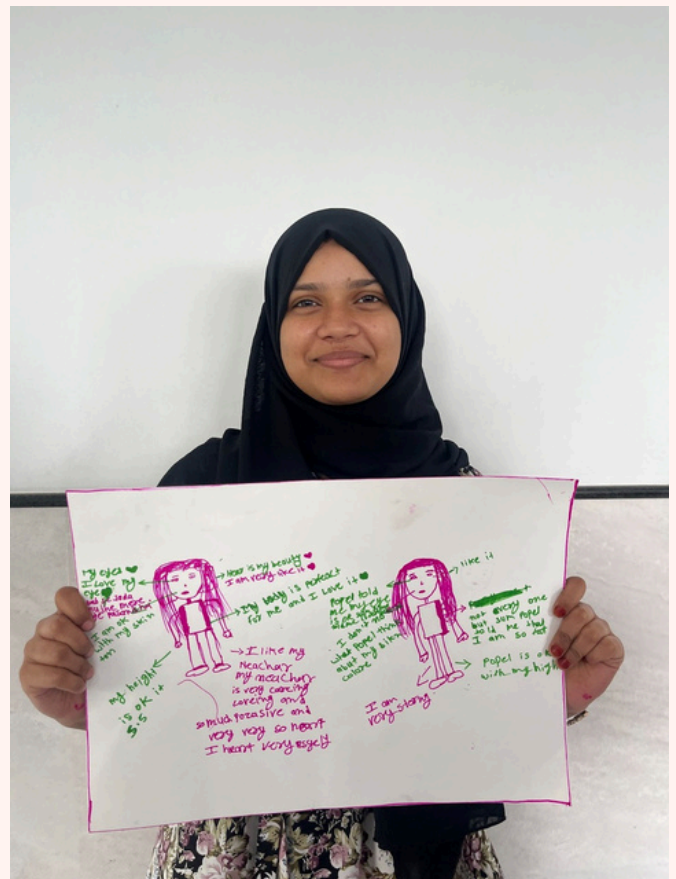 My eyes
I Love my
eye
I am ok
with my skin
my height
is ok it
5.5
Hear is my beauty
I am very like it
My body is perfect
for me and I Love it
I like my
neachar
my neachar
is very careing
loveing and
so mud pozasive and
very very so heart
I heart very esyely
like it
Popel told
me my eye
I am ok
what Popel think
about my skin
colore
not every one
but sum Popel
told me that
I am so fat
Popel is ok
with my high
I am
very strong